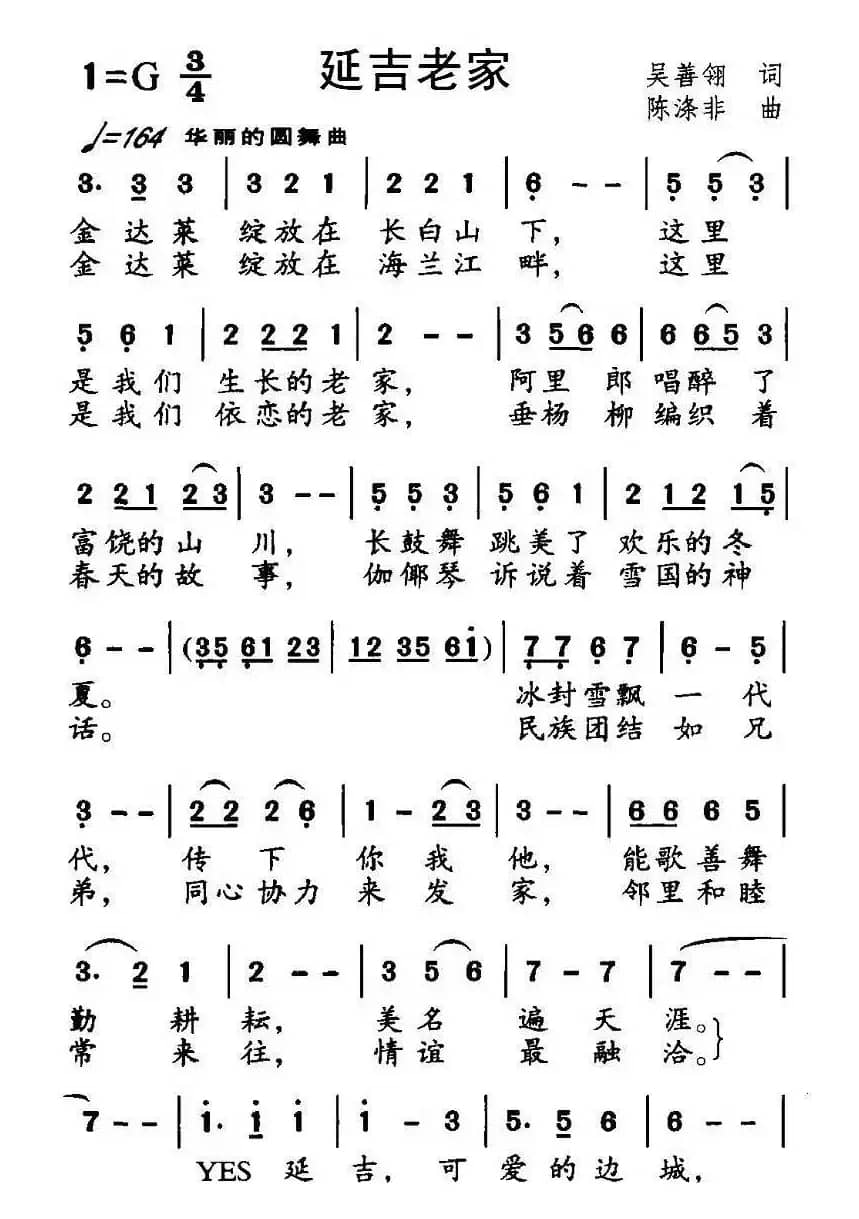 1=G 3/4 延吉老家 吴善翎 词
陈涤非 曲
♩=164 华丽的圆舞曲
3. 3 3 | 3 2 1 | 2 2 1 | 6 - - | 5 5 3 |
金达莱 绽放在 长白山 下， 这里
金达莱 绽放在 海兰江 畔， 这里
5 6 1 | 2 2 2 1 | 2 - - | 3 5 6 6 | 6 6 5 3 |
是我们 生长的老 家， 阿里 郎 唱醉 了
是我们 依恋的老 家， 垂杨 柳 编织 着
2 2 1 2 3 | 3 - - | 5 5 3 | 5 6 1 | 2 1 2 1 5 |
富饶的 山 川， 长鼓舞 跳美了 欢乐的 冬
春天的 故 事， 伽倻琴 诉说着 雪国的 神
6 - - | (3 5 6 1 2 3 | 1 2 3 5 6 1) | 7 7 6 7 | 6 - 5 |
夏。 冰封雪飘 一 代
话。 民族团结 如 兄
3 - - | 2 2 2 6 | 1 - 2 3 | 3 - - | 6 6 6 5 |
代， 传 下 你 我 他， 能歌善舞
弟， 同心协力 来 发 家， 邻里和睦
3. 2 1 | 2 - - | 3 5 6 | 7 - 7 | 7 - - |
勤 耕 耘， 美 名 遍 天 涯。
常 来 往， 情 谊 最 融 洽。
7 - - | 1. 1 1 | 1 - 3 | 5. 5 6 | 6 - - |
YES 延 吉， 可 爱的边 城，